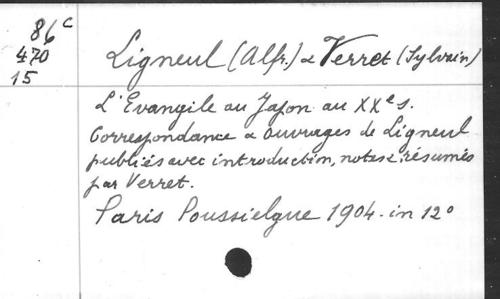 86c
470
15
Ligneul (Alfr.) & Verret (Sylvain)
L'Evangile au Japon au XXe s.
Correspondance & ouvrages de Ligneul
publiés avec introduction, notes & résumés
par Verret.
Paris Poussielgue 1904. in 12º